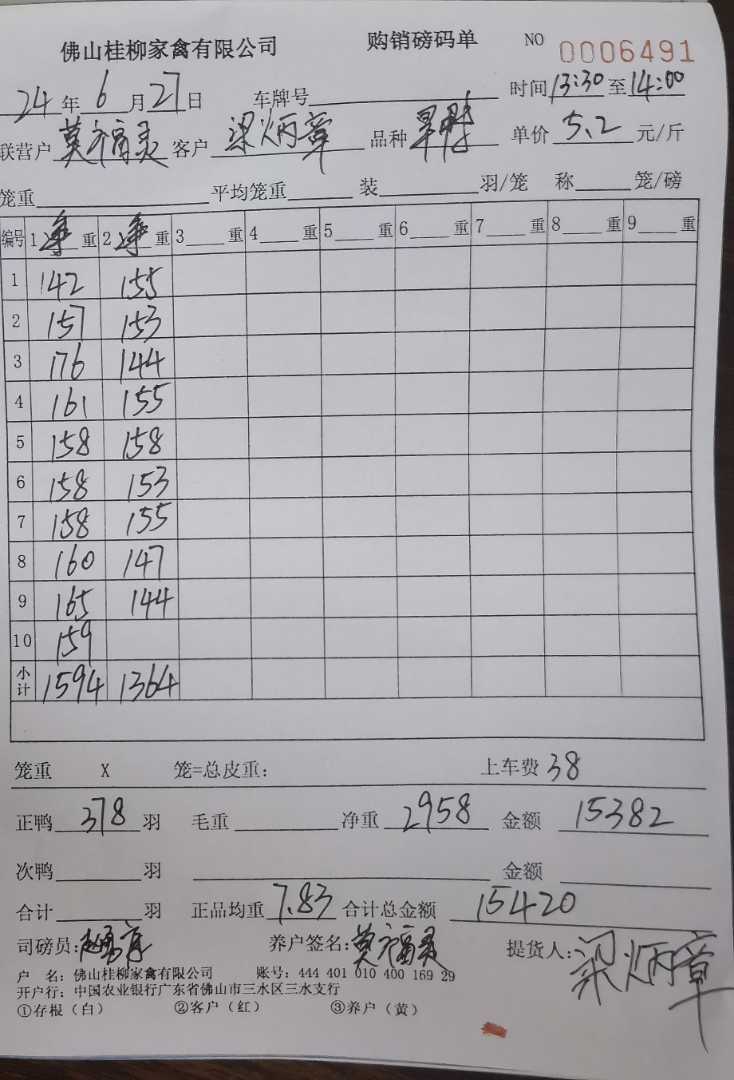 佛山桂柳家禽有限公司 购销磅码单 NO 0006491
24年6月27日 车牌号 时间13:30至14:00
联营户 莫福灵 客户 梁炳章 品种 单价 5.2 元/斤
笼重 平均笼重 装 羽/笼 称 笼/磅
编号 1净重 2净重 3 重 4 重 5 重 6 重 7 重 8 重 9 重
1 142 155
2 157 153
3 176 144
4 161 155
5 158 158
6 158 153
7 158 155
8 160 147
9 165 144
10 159
小计 1594 1364
笼重 X 笼=总皮重: 上车费 38
正鸭 378 羽 毛重 净重 2958 金额 15382
次鸭 羽 金额
合计 羽 正品均重 7.83 合计总金额 15420
司磅员: 养户签名:莫福灵 提货人:梁炳章
户 名:佛山桂柳家禽有限公司 账号:444 401 010 400 169 29
开户行:中国农业银行广东省佛山市三水区三水支行
①存根（白） ②客户（红） ③养户（黄）